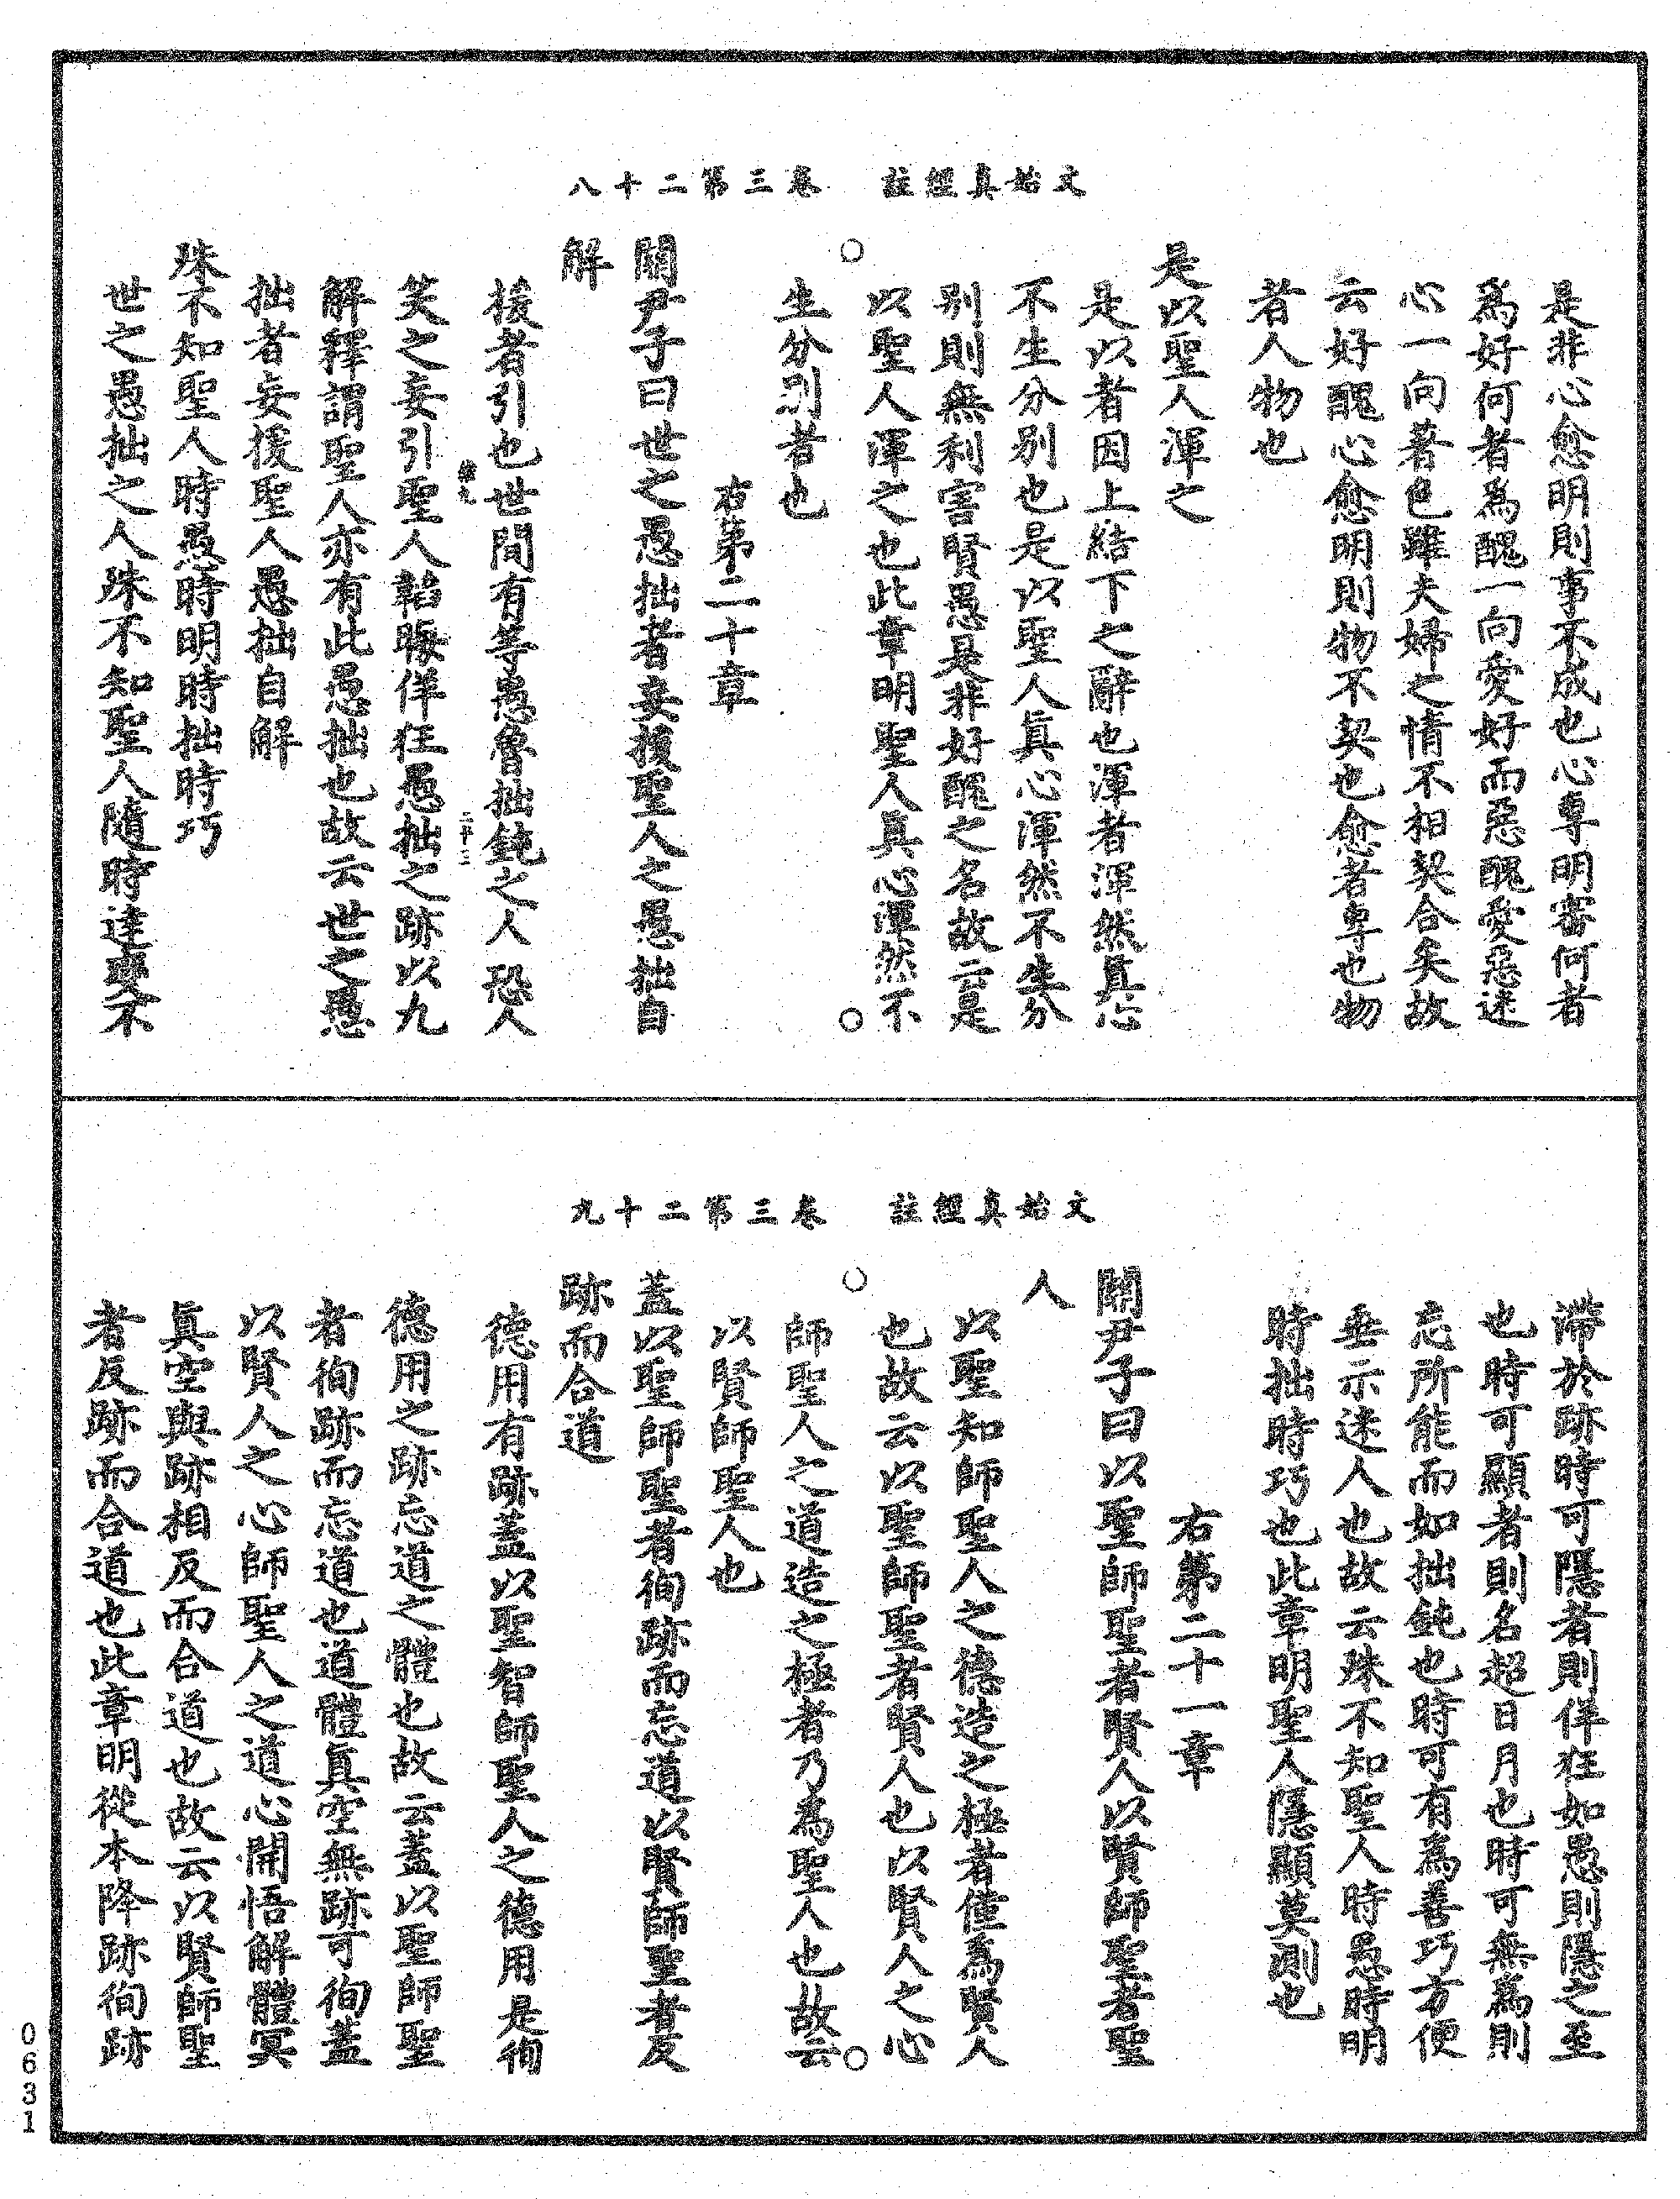 文始真經註　卷三第二十八
是非心愈明則事不成也心專明審何者
為好何者為醜一向愛好而惡醜愛惡迷
心一向著色雖夫婦之情不相契合矣故
云好醜心愈明則物不契也愈者專也物
者人物也
是以聖人渾之
是以者因上結下之辭也渾者渾然真心
不生分別也是以聖人真心渾然不生分
別則無利害賢愚是非好醜之名故云是
以聖人渾之也此章明聖人真心渾然不
生分別者也
右第二十章
關尹子曰世之愚拙者妄援聖人之愚拙自
解
援者引也世間有等愚魯拙鈍之人恐人
笑之妄引聖人韜晦佯狂愚拙之跡以九
解釋謂聖人亦有此愚拙也故云世之愚
拙者妄援聖人愚拙自解
殊不知聖人時愚時明時拙時巧
世之愚拙之人殊不知聖人隨時達變不
文始真經註　卷三第二十九
滯於跡時可隱者則佯狂如愚則隱之至
也時可顯者則名超日月也時可無為則
忘所能而如拙鈍也時可有為善巧方便
垂示迷人也故云殊不知聖人時愚時明
時拙時巧也此章明聖人隱顯莫測也
右第二十一章
關尹子曰以聖師聖者賢人以賢師聖者聖
人
以聖知師聖人之德造之極者僅為賢人
也故云以聖師聖者賢人也以賢人之心
師聖人之道造之極者乃為聖人也故云
以賢師聖人也
蓋以聖師聖者徇跡而忘道以賢師聖者反
跡而合道
德用有跡蓋以聖智師聖人之德用是徇
德用之跡忘道之體也故云蓋以聖師聖
者徇跡而忘道也道體真空無跡可徇蓋
以賢人之心師聖人之道心開悟解體冥
真空與跡相反而合道也故云以賢師聖
者反跡而合道也此章明從本降跡徇跡
0631